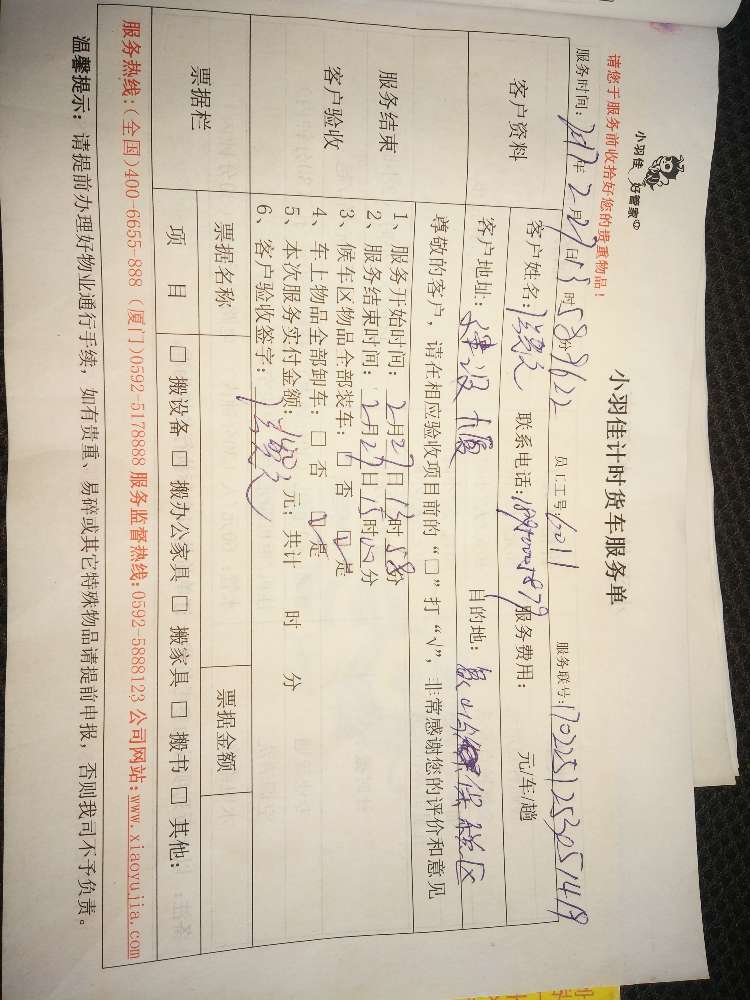 小羽佳 好管家
请您于服务前收拾好您的贵重物品！
小羽佳计时货车服务单
服务时间：2017年2月27日13时58分 员工工号 服务联号：
客户资料
客户姓名： 联系电话： 服务费用： 元/车/趟
客户地址：建设大厦 目的地：象屿保税区
尊敬的客户，请在相应验收项目前的“□”打“√”，非常感谢您的评价和意见
服务结束
客户验收
1、服务开始时间：2月27日13时58分
2、服务结束时间：2月27日15时 分
3、候车区物品全部装车：□ 否 ☑是
4、车上物品全部卸车：□ 否 ☑是
5、本次服务实付金额： 元；共计 时 分
6、客户验收签字：
票据栏
票据名称 票据金额
项 目 □ 搬设备 □ 搬办公家具 □ 搬家具 □ 搬书 □ 其他:
服务热线:(全国)400-6655-888 (厦门)0592-5178888 服务监督热线:0592-5888123 公司网站:www.xiaoyujia.com
温馨提示：请提前办理好物业通行手续；如有贵重、易碎或其它特殊物品请提前申报，否则我司不予负责。